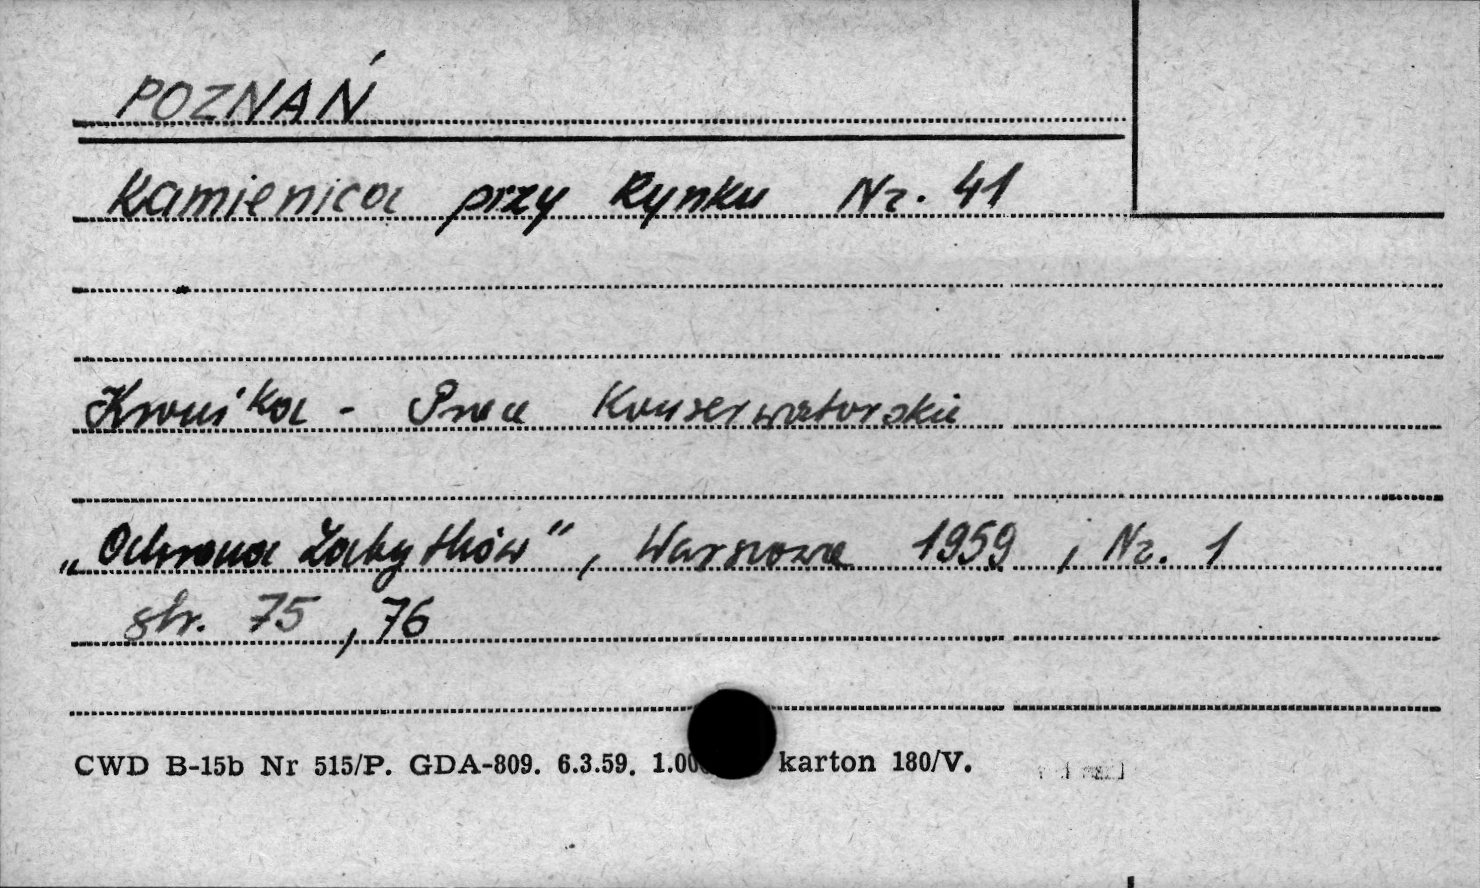 POZNAŃ
Kamienica przy Rynku Nr. 41
Kronika - Prace Konserwatorskie
„Ochrona Zabytków”, Warszawa 1959, Nr. 1
str. 75, 76
CWD B-15b Nr 515/P. GDA-809. 6.3.59. karton 180/V.